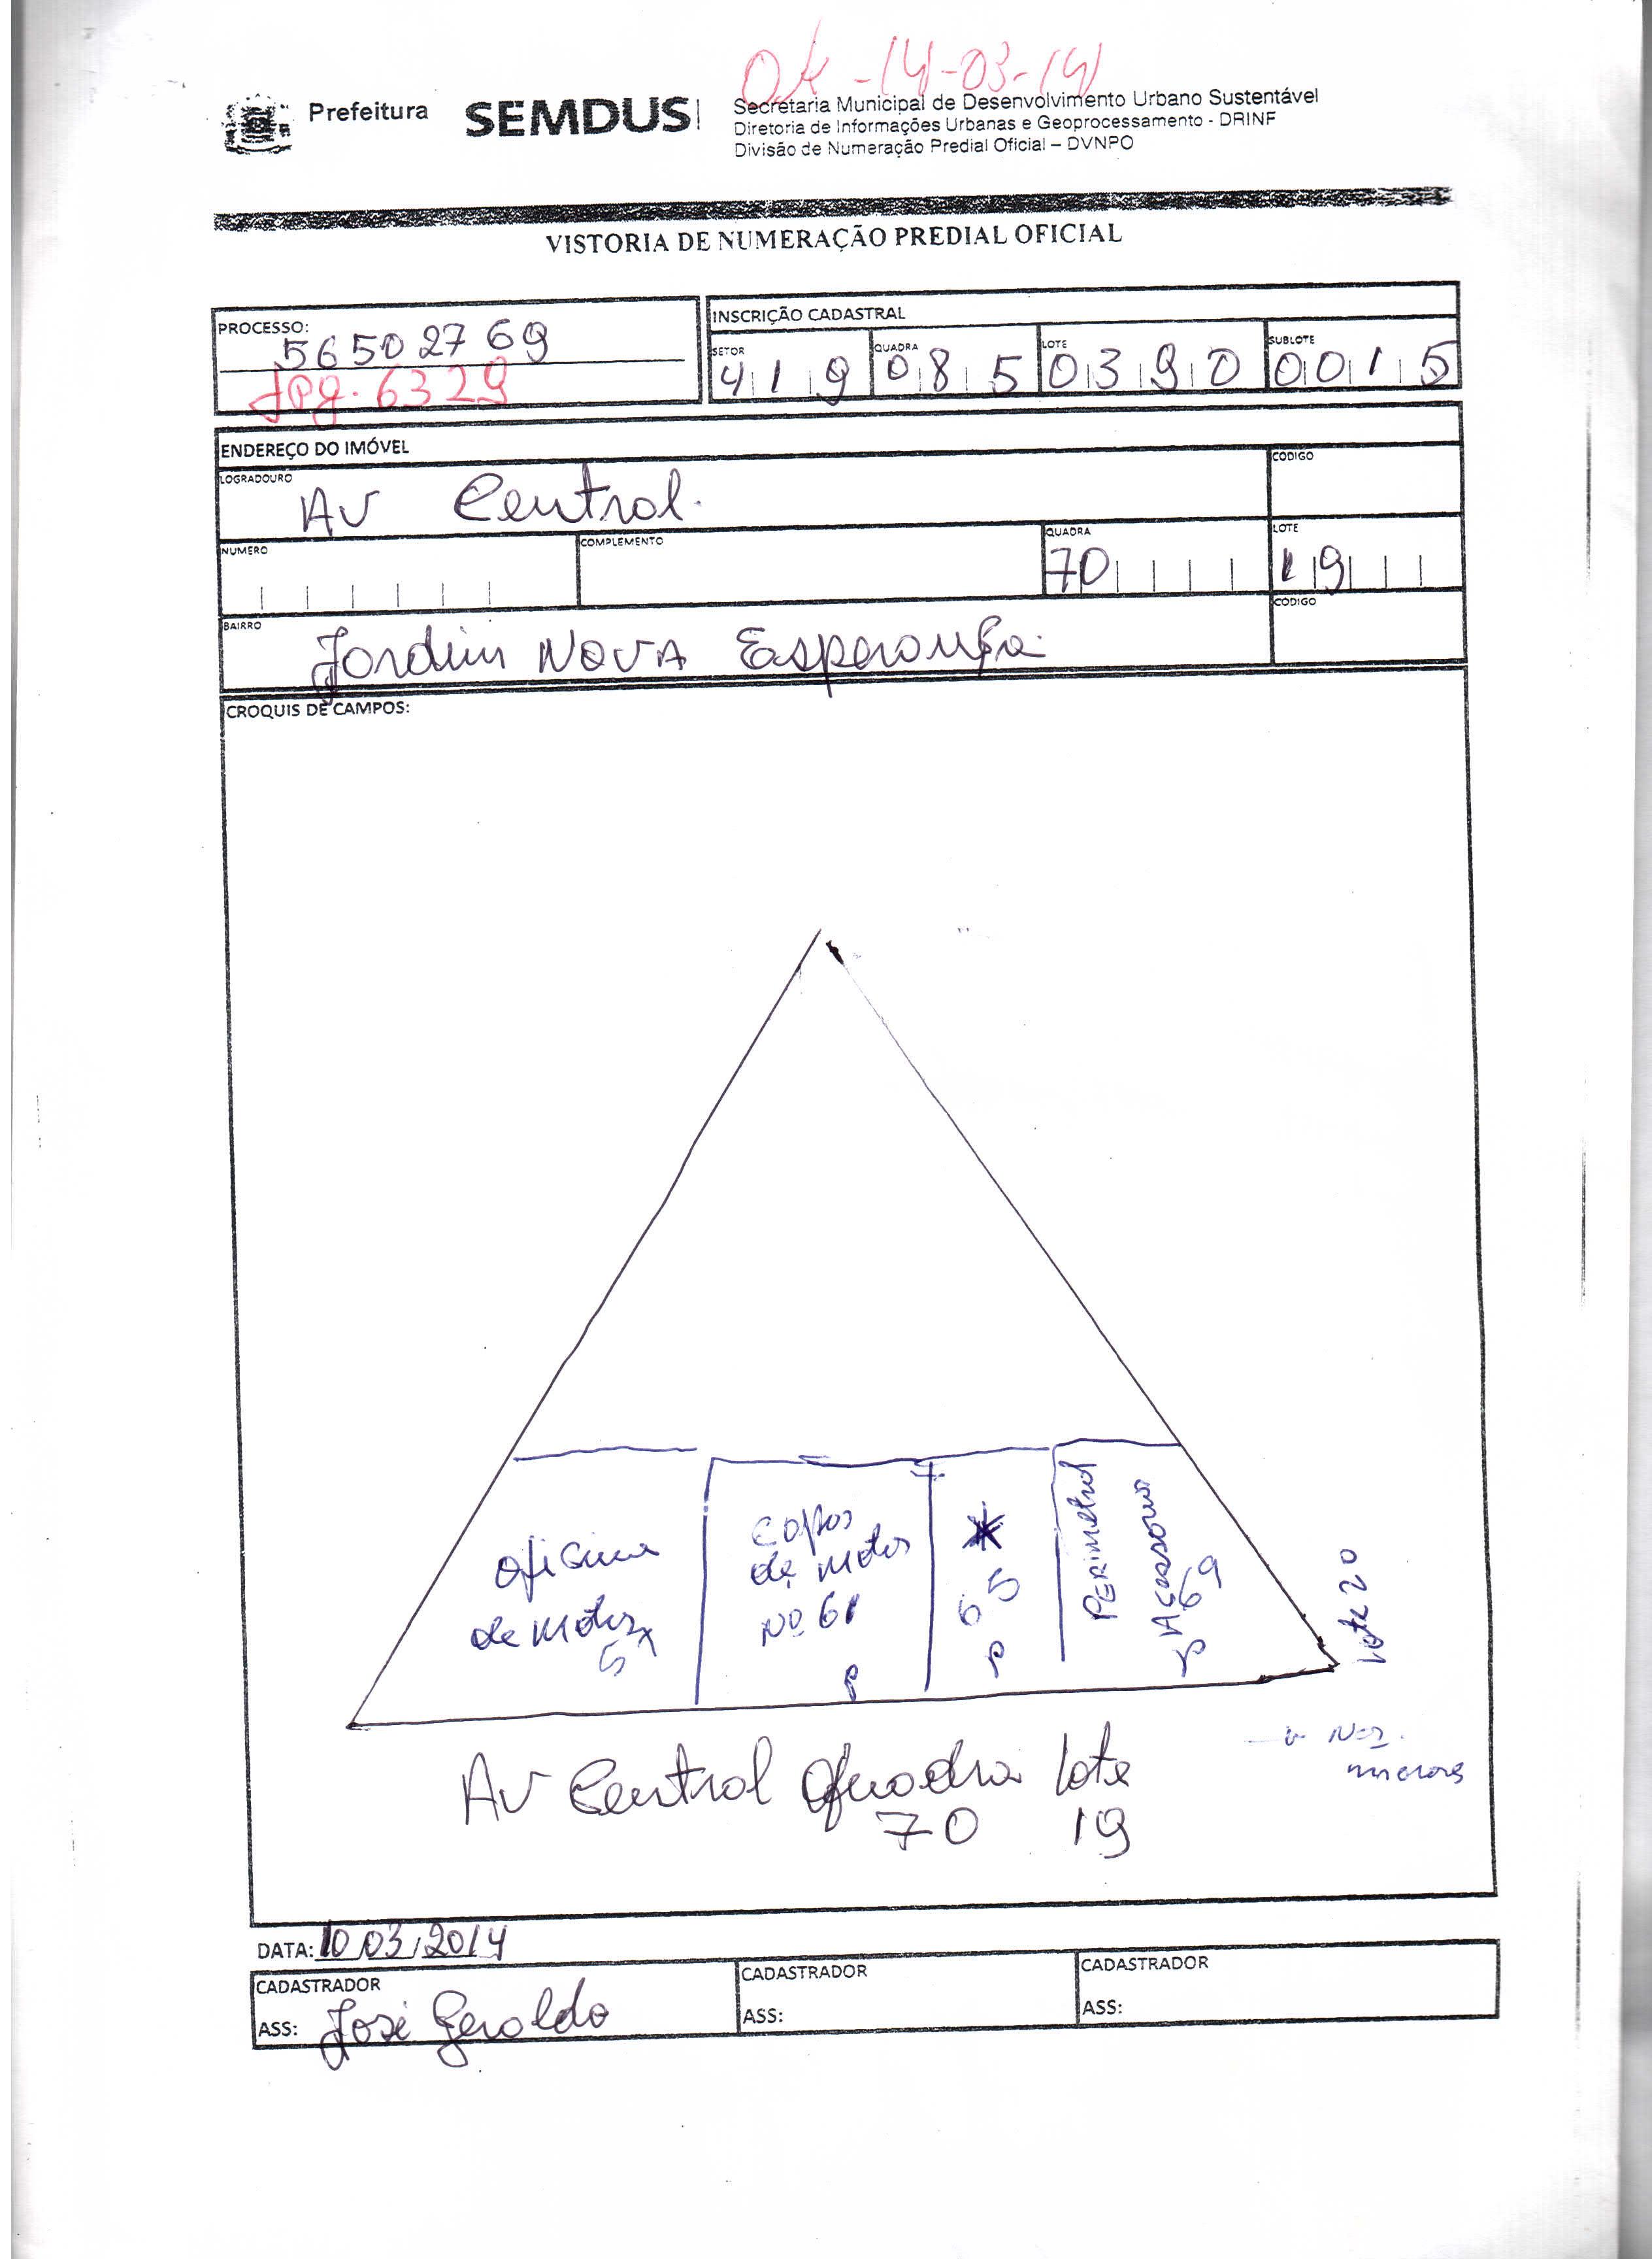 OK-14-03-14
Prefeitura SEMDUS
Secretaria Municipal de Desenvolvimento Urbano Sustentável
Diretoria de Informações Urbanas e Geoprocessamento - DRINF
Divisão de Numeração Predial Oficial – DVNPO
VISTORIA DE NUMERAÇÃO PREDIAL OFICIAL
PROCESSO:
56502769
Jpg. 6329
INSCRIÇÃO CADASTRAL
SETOR QUADRA LOTE SUBLOTE
419 085 0390 0015
ENDEREÇO DO IMÓVEL
LOGRADOURO CODIGO
AV Central.
NUMERO COMPLEMENTO QUADRA LOTE
70 19
BAIRRO CODIGO
Jardim NOVA Esperança
CROQUIS DE CAMPOS:
Oficina
de motos
57
de motos
Nº 61
65
PERIMETRAL
69
Lote 20
AV Central Quadra Lote
70 19
DATA: 10 03 2014
CADASTRADOR CADASTRADOR CADASTRADOR
ASS: José Geraldo ASS: ASS: